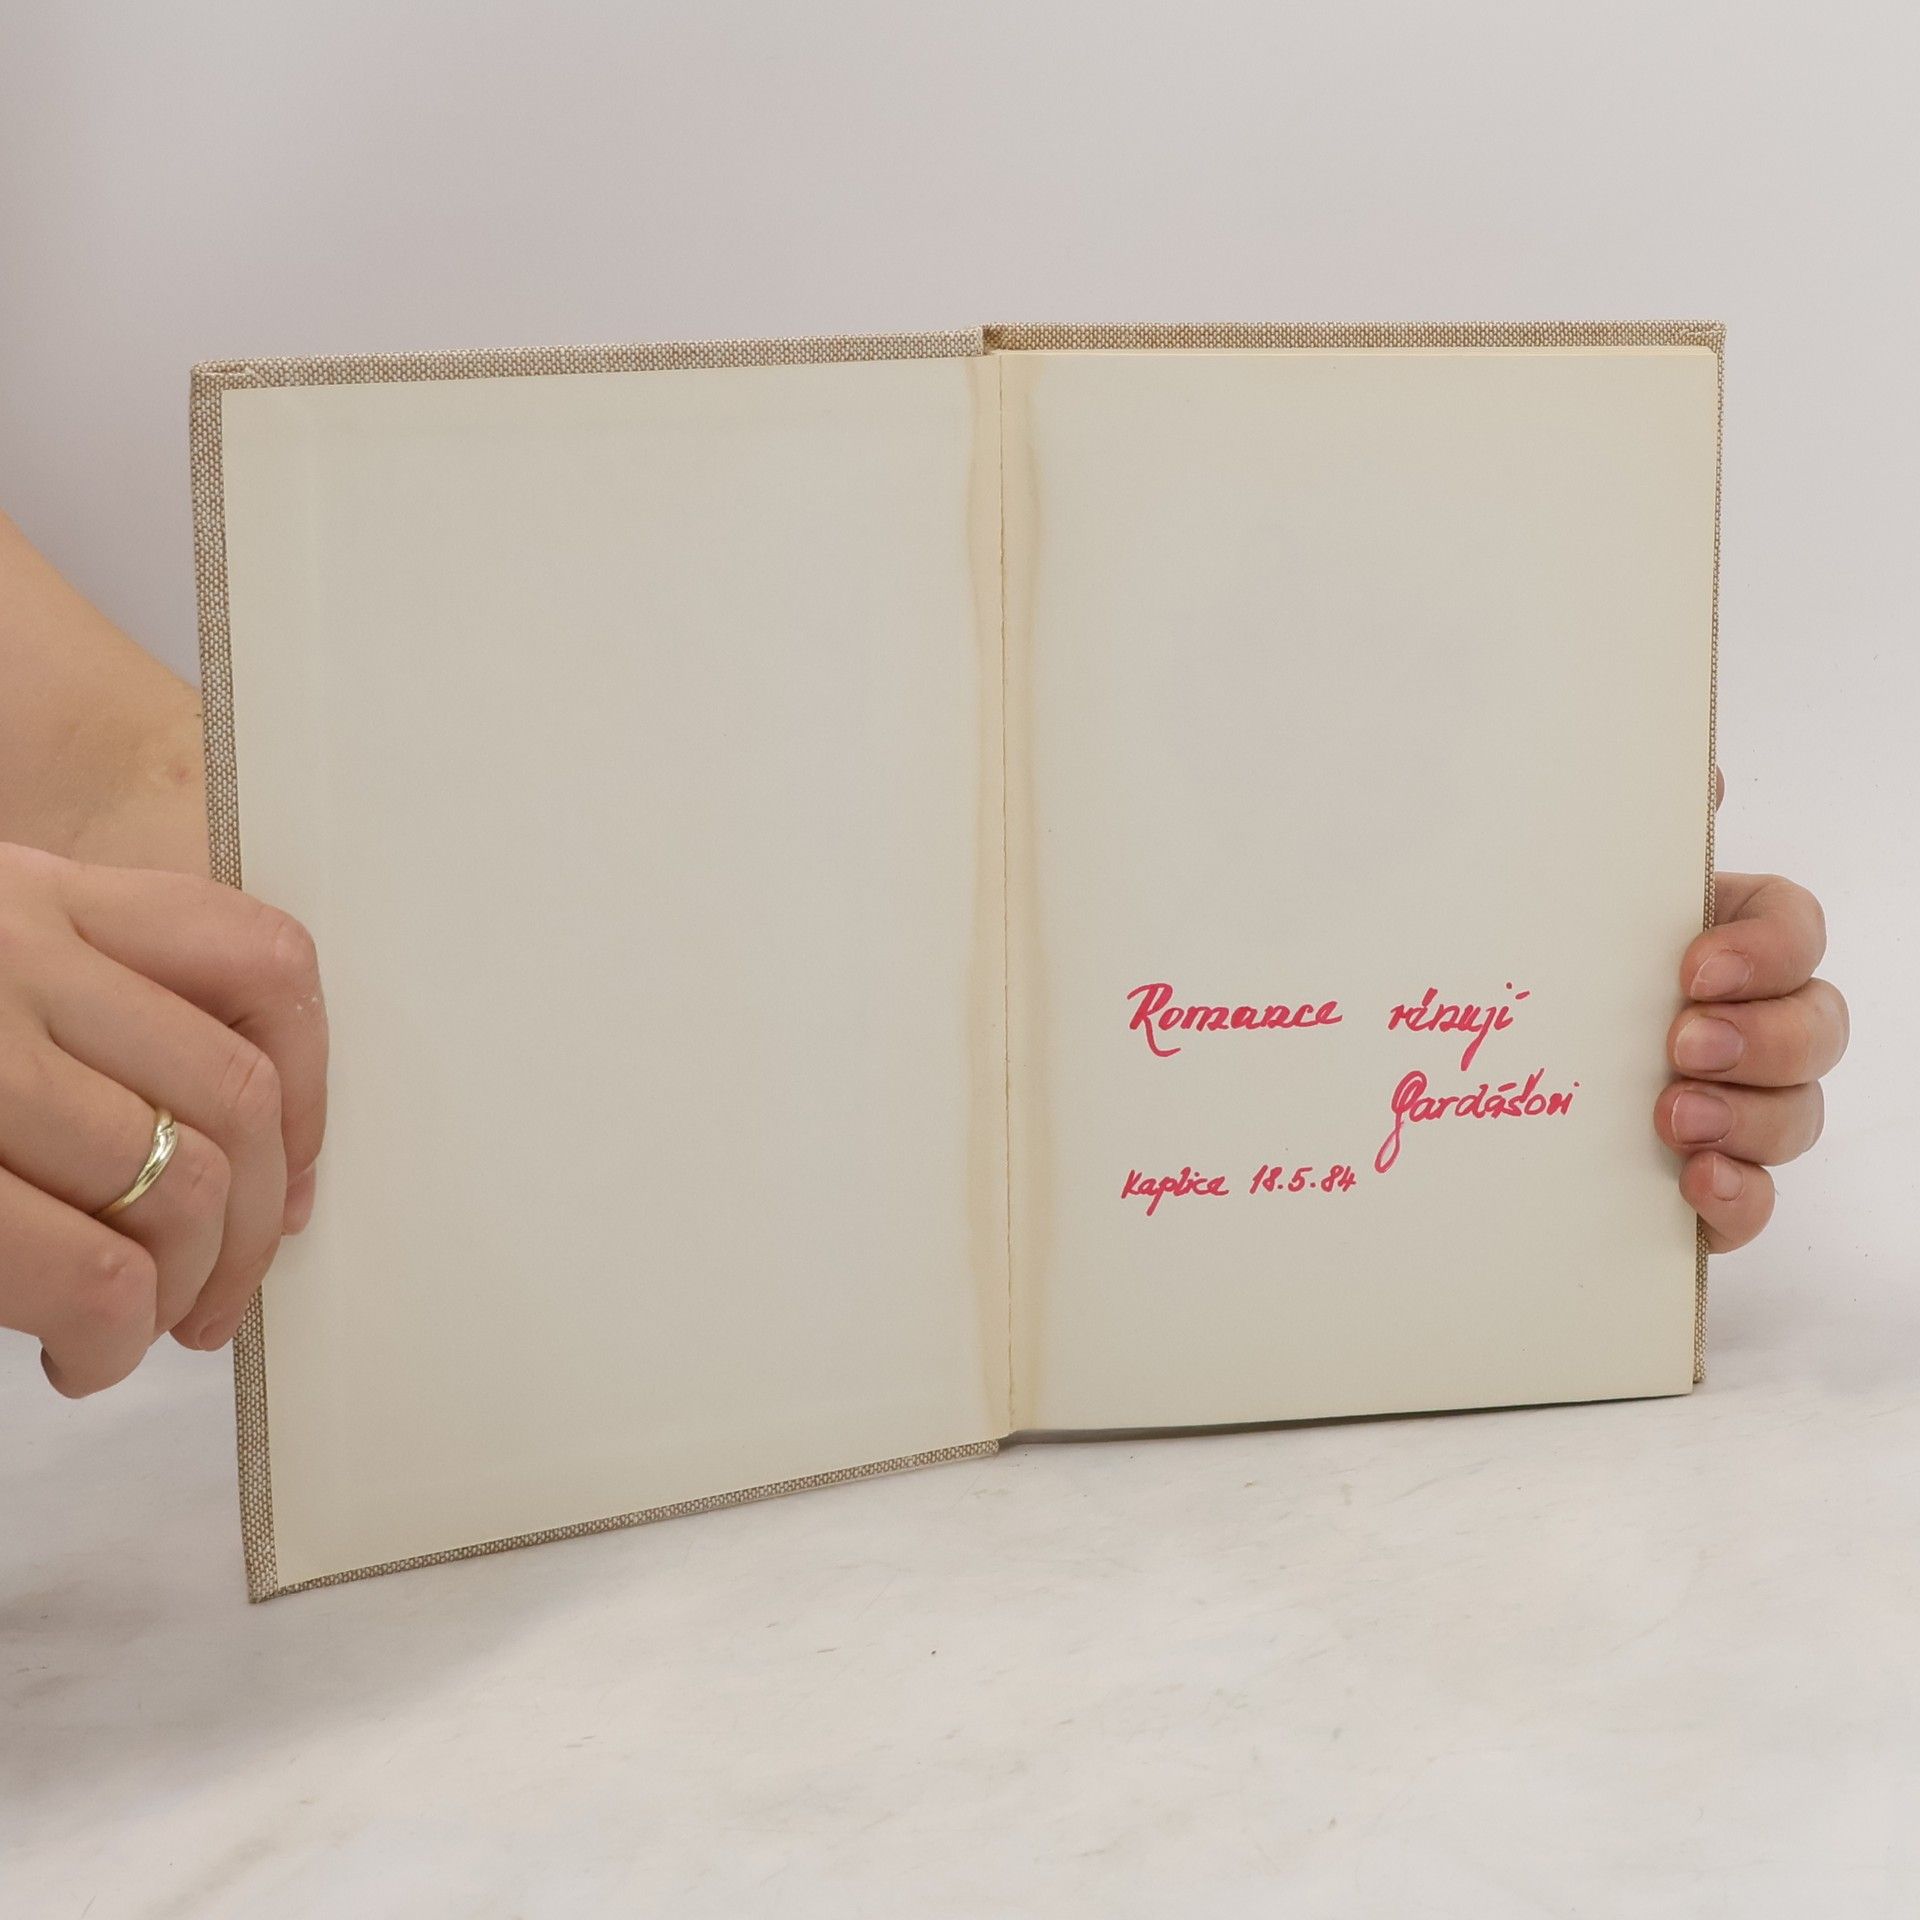 Romance věnují
Gardášovi
Kaplice 18.5.84